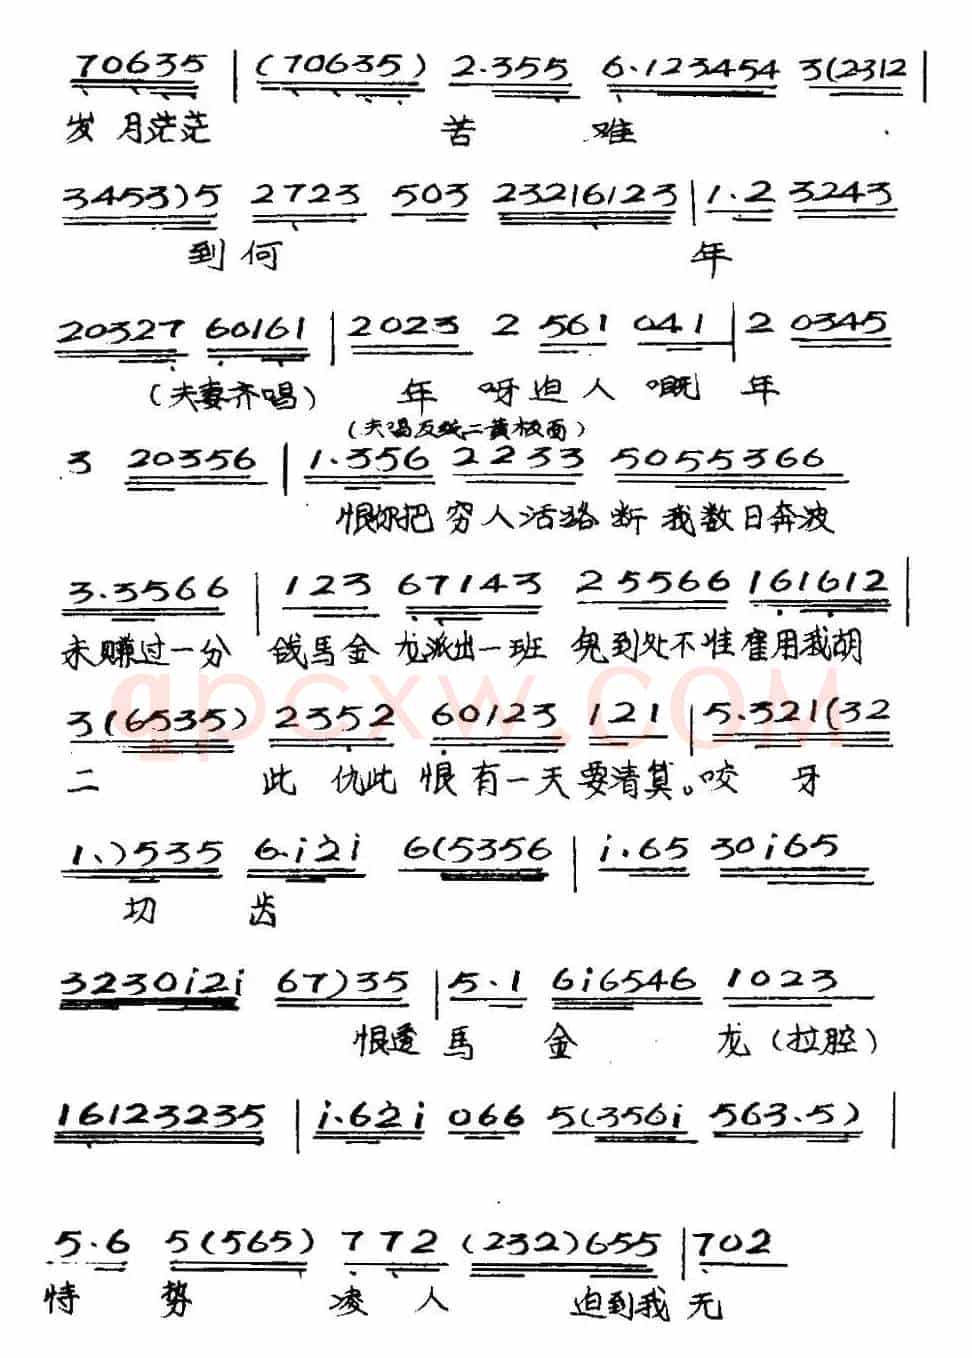 70635 | (70635) 2.355 6.123454 3(2312 |
岁月茫茫 苦 难
3453)5 2723 503 23216123 | 1.2 3243
到何 年
20327 60161 | 2023 2 561 041 | 2 0345
(夫妻齐唱) 年 呀迫人 嘅 年
(夫唱反线二黄板面)
3 20356 | 1.356 2233 5055366
恨你把 穷人活路断 我数日奔波
3.3566 | 123 67143 25566 161612 |
未赚过一分 钱馬金龙派出一班 鬼到处不准雇用我胡
qpcxw.com
3(6535) 2352 60123 121 | 5.321(32
二 此 仇此 恨有一天要清算。咬 牙
1.)535 6.i2i 6(5356 | i.65 30i65
切 齿
3230i2i 67)35 | 5.1 6i6546 1023
恨透 馬 金 龙(拉腔)
16123235 | i.62i 066 5(356i 563.5) |
5.6 5(565) 772 (232)655 | 702
恃 势 凌 人 迫到我 无